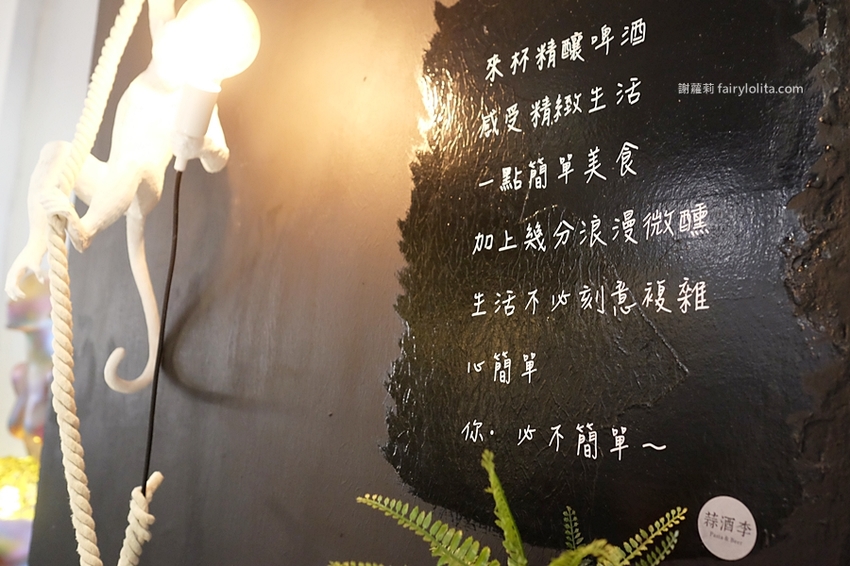 來杯精釀啤酒
謝蘿莉 fairylolita.com
感受精緻生活
一點簡單美食
加上幾分浪漫微醺
生活不必刻意複雜
心簡單
你·必不簡單～
蒜酒李
Pasta & Beer